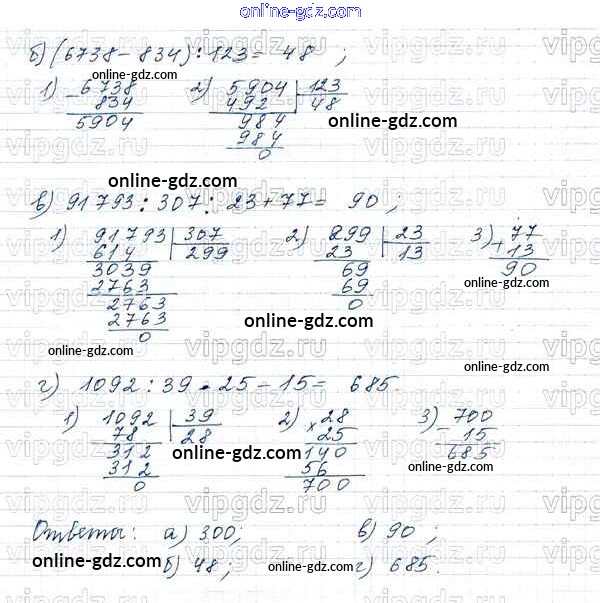 online-gdz.com
б) (6738 - 834) : 123 = 48 ;
1) 6738 2) 5904 | 123
- 834 492 48
5904 984
984
0
online-gdz.com
online-gdz.com
online-gdz.com
в) 91793 : 307 : 23 + 77 = 90 ;
1) 91793 | 307 2) 299 | 23 3) 77
614 299 23 13 + 13
3039 69 90
2763 69
2763 0
2763
0
online-gdz.com
online-gdz.com
online-gdz.com
г) 1092 : 39 · 25 - 15 = 685.
1) 1092 | 39 2) 28 3) 700
78 28 × 25 - 15
312 140 685
312 56
0 700
online-gdz.com
online-gdz.com
online-gdz.com
Ответы: а) 300; в) 90 ;
б) 48 ; г) 685.
online-gdz.com
online-gdz.com
vipgdz.ru